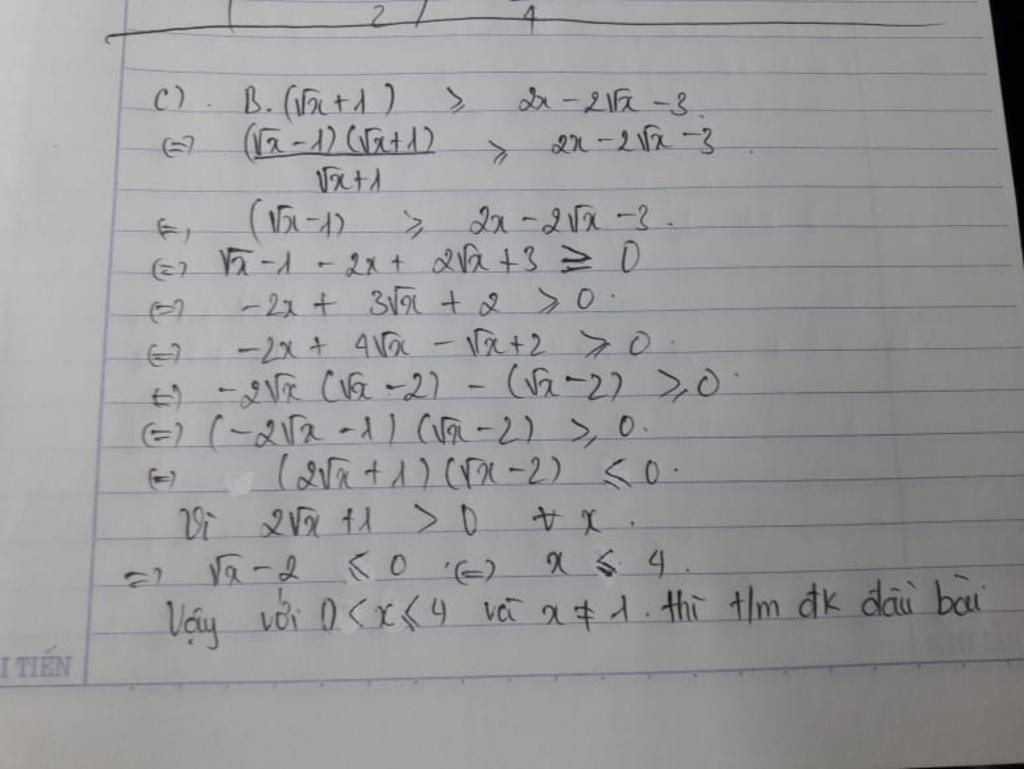 2 4
c). B.(√x+1) ≥ 2x-2√x-3.
(=) (√x-1)(√x+1) / √x+1 ≥ 2x-2√x-3.
(=, (√x-1) ≥ 2x-2√x-3.
(=) √x-1-2x+2√x+3 ≥ 0
(=) -2x+3√x+2 ≥ 0.
(=) -2x+4√x-√x+2 ≥ 0.
(=) -2√x(√x-2)-(√x-2) ≥ 0.
(=) (-2√x-1)(√x-2) ≥ 0.
(=) (2√x+1)(√x-2) ≤ 0.
Vì 2√x+1 > 0 ∀ x.
=) √x-2 ≤ 0 (=) x ≤ 4.
Vậy với 0<x≤4 và x≠1. thì t/m đk đầu bài
I TIẾN